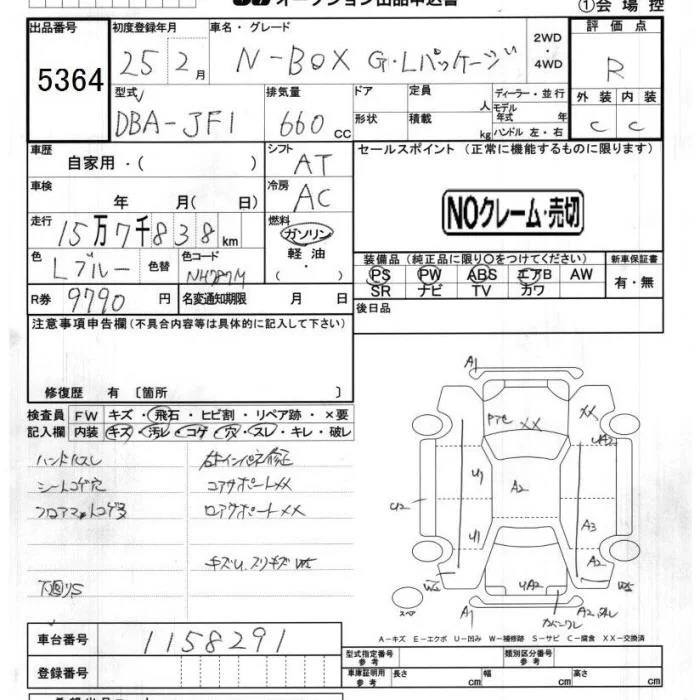 オークション出品申込書
①会場控
出品番号 初度登録年月 車名・グレード 評価点
5364 25 2月 N-BOX G・Lパッケージ 2WD 4WD R
型式 排気量 ドア 定員 人 ディーラー・並行 外装 内装
DBA-JF1 660 cc 形状 積載 kg モデル年式 年 ハンドル 左・右 C C
車歴 シフト セールスポイント (正常に機能するものに限ります)
自家用・( ) AT
車検 年 月( 日) 冷房 AC
NOクレーム・売切
走行 15万7千838km 燃料 ガソリン 軽油・ ( )
色 Lブルー 色替 色コード NH787M
装備品 (純正品に限り○をつけてください) 新車保証書
PS PW ABS エアB AW 有・無
SR ナビ TV カワ
R券 9790円 名変通知期限 月 日
後日品
注意事項申告欄(不具合内容等は具体的に記入して下さい)
修復歴 有 〔箇所 〕
検査員 FW キズ・飛石・ヒビ割・リペア跡・×要
記入欄 内装 キズ・汚レ・コゲ・穴・スレ・キレ・破レ
ハンドルスレ 右インパネ修正
シートコゲ穴 コアサポートXX
フロアマットコゲ穴 ロアサポートXX
キズU、スリキズ W5
下回りS
A1
XX XX
UA2
U1 A2
U2 U1 A3
A2
W5 UA2 W5
スペア A1 カバーワレ
A-キズ E-エクボ U-凹み W-補修跡 S-サビ C-腐食 XX-交換済
車台番号 1158291
型式指定番号 参考 類別区分番号 参考
登録番号
車庫証明用 参考 長さ cm 幅 cm 高さ cm